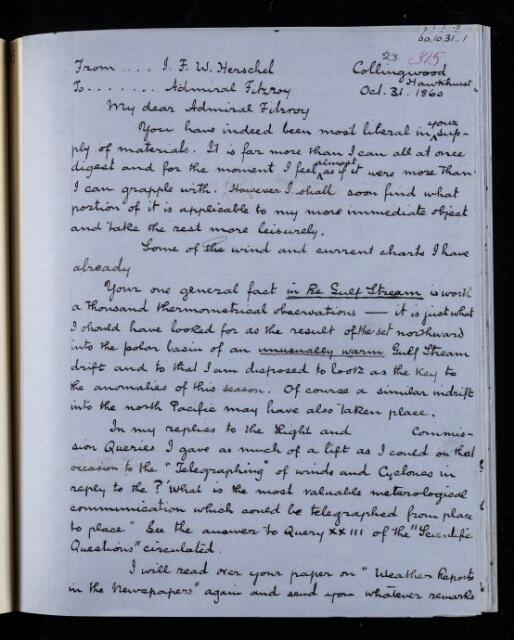 60.10.31-1
23 315
From .... J. F. W. Herschel Collingwood
Hawkhurst
To ....... Admiral Fitzroy Oct. 31. 1860
My dear Admiral Fitzroy
You have indeed been most liberal in your sup-
ply of materials. It is far more than I can all at once
digest and for the moment I feel almost as if it were more than
I can grapple with. However I shall soon find what
portion of it is applicable to my more immediate object
and take the rest more leisurely.
Some of the wind and current charts I have
already
Your one general fact in Re Gulf Stream is worth
a thousand thermometrical observations — it is just what
I should have looked for as the result of the set northward
into the polar basin of an unusually warm Gulf Stream
drift and to that I am disposed to look as the key to
the anomalies of this season. Of course a similar indrift
into the north Pacific may have also taken place.
In my replies to the Light and Commis-
sion Queries I gave as much of a lift as I could on that
occasion to the "Telegraphing" of winds and Cyclones in
reply to the ? "What is the most valuable meterological
communication which could be telegraphed from place
to place" See the answer to Query XXIII of the "Scientific
Questions" circulated.
I will read over your paper on "Weather Reports
in the Newspapers" again and send you whatever remarks